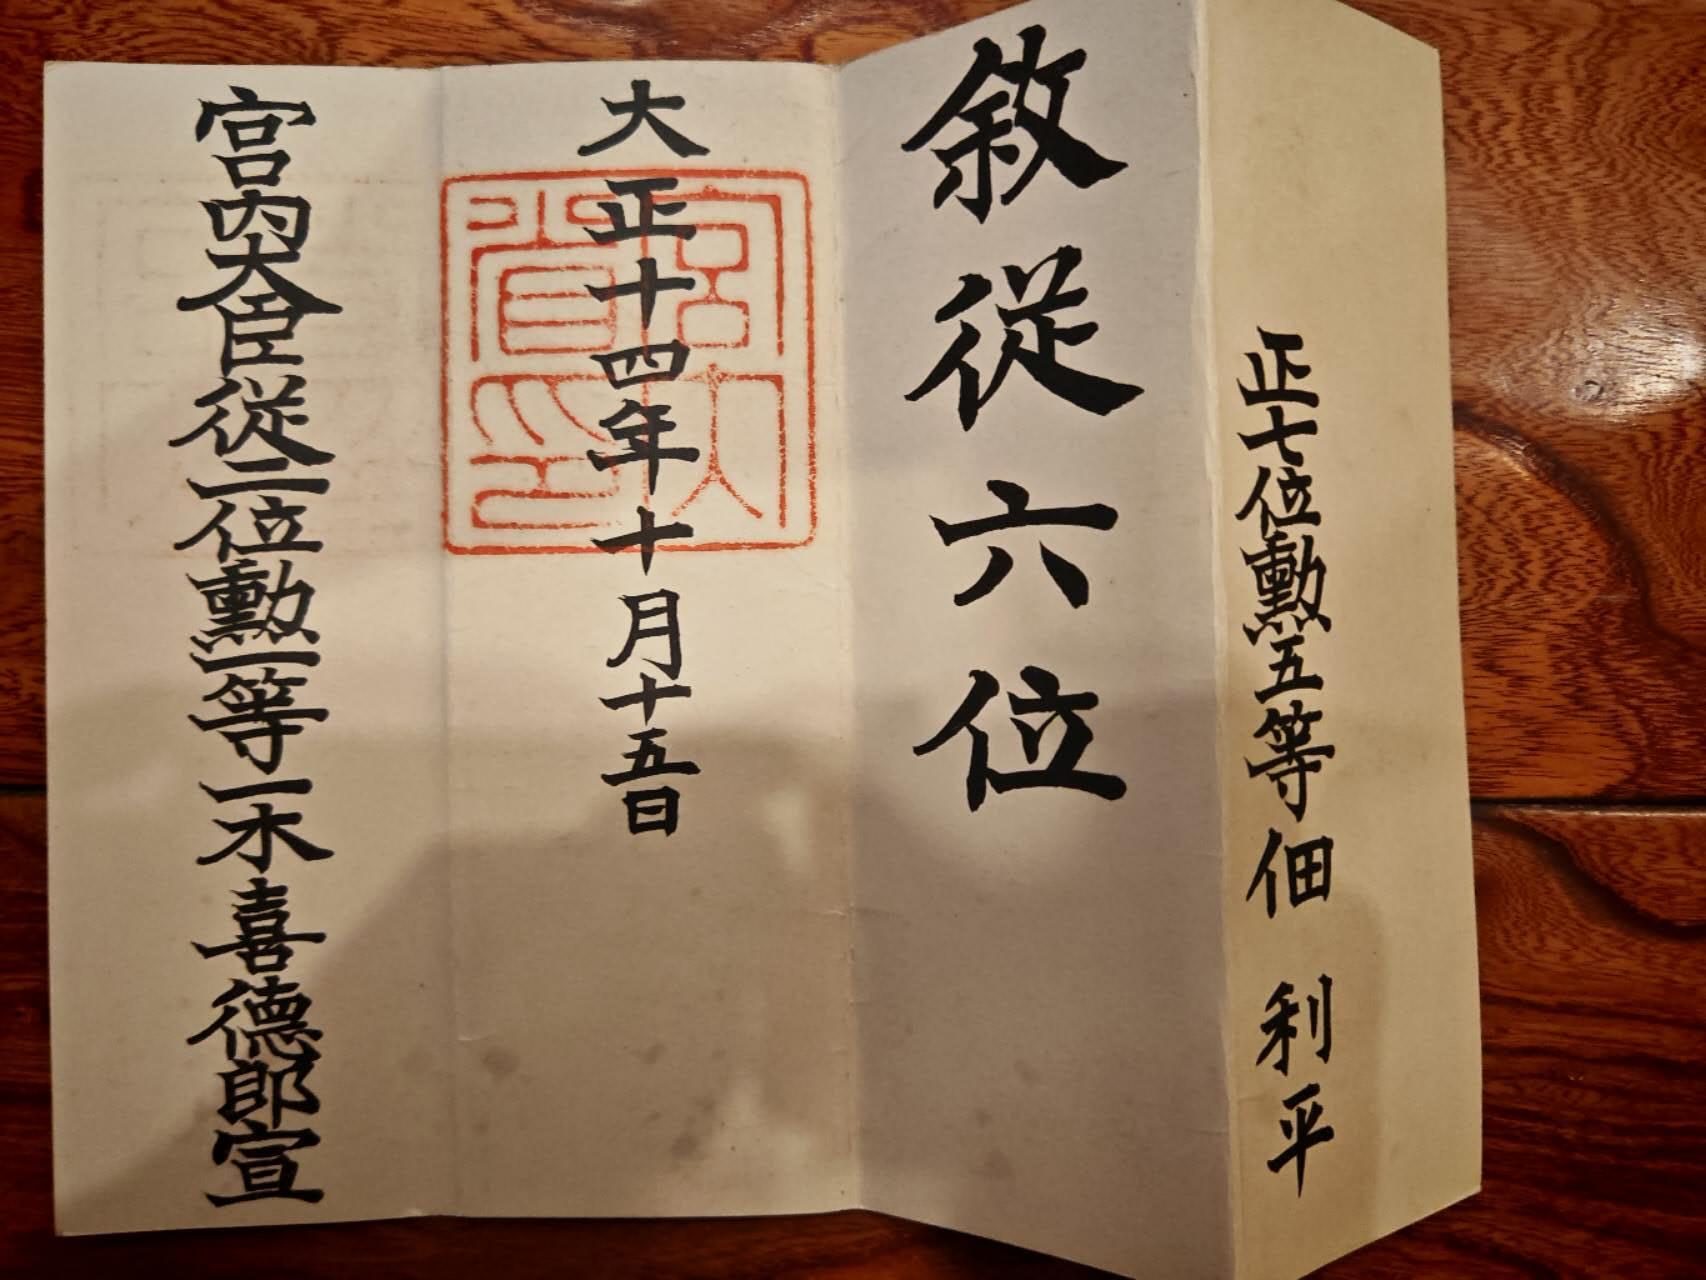 正七位勲五等佃 利平
敘從六位
大正十四年十月十五日
宮内大臣從二位勲一等一木喜德郎宣
宮内
省印